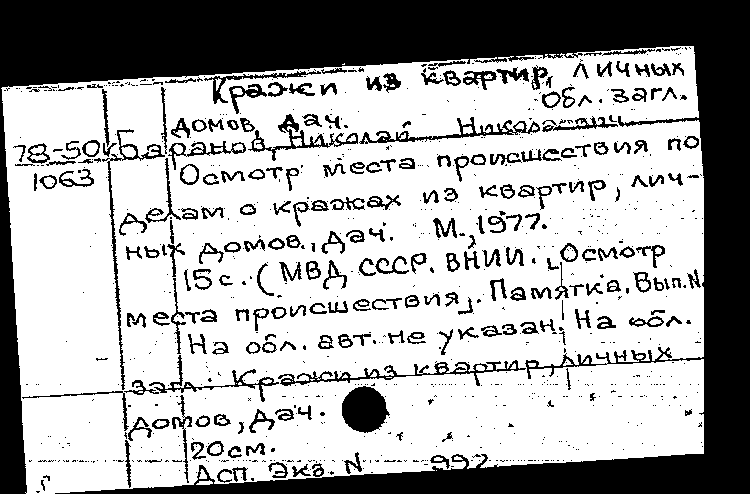 Кражи из квартир, личных
Обл. загл.
домов, дач.
78-50к Баранов, Николай Николаевич
1063 Осмотр места происшествия по
делам о кражах из квартир, лич-
ных домов, дач. М., 1977.
15с. (МВД СССР. ВНИИ. „Осмотр
места происшествия„. Памятка. Вып. №
На обл. авт. не указан. На обл.
загл.: Кражи из квартир, личных
домов, дач.
20см.
Дсп. Экз. N 992